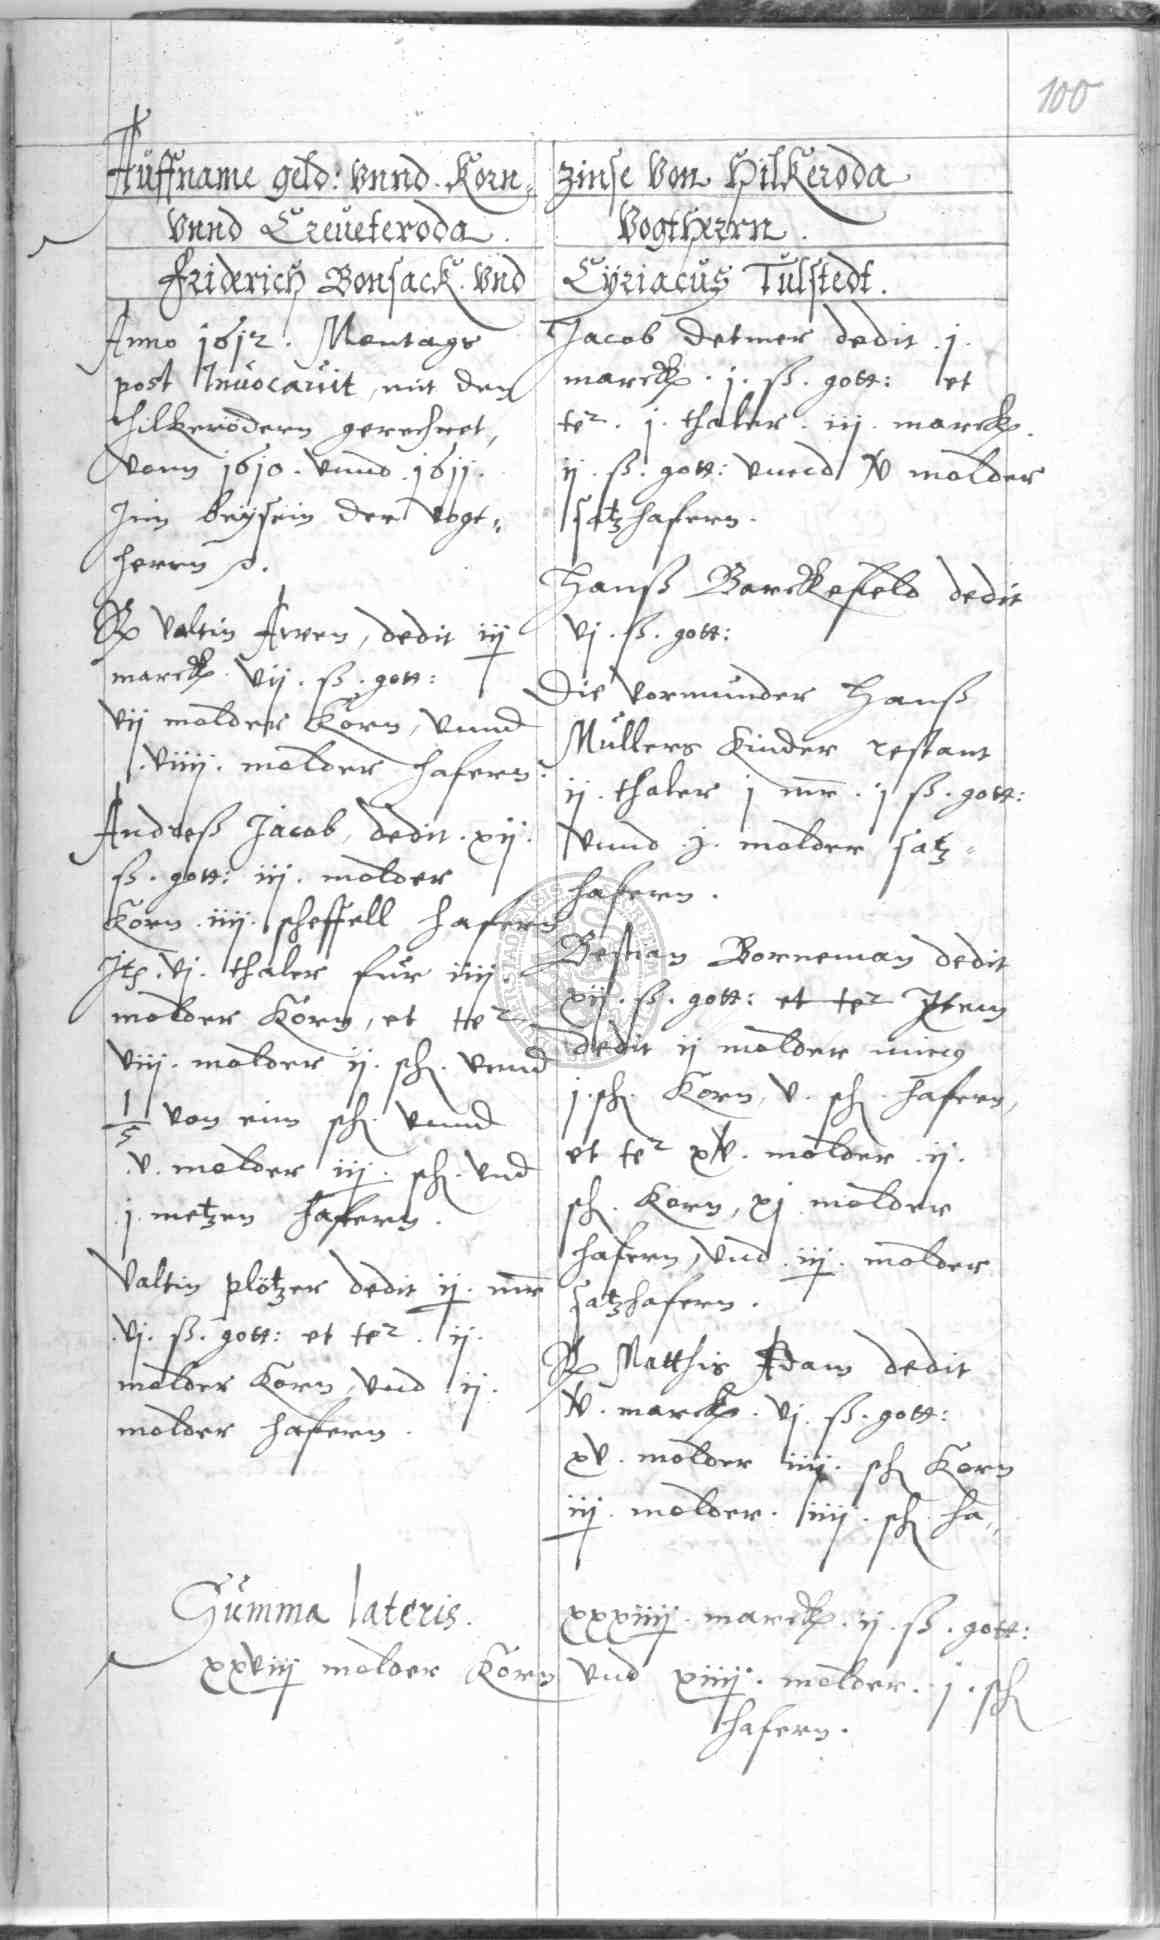 100
Auffname geld: vnnd Korn- zinse von Hilkeroda
vnnd Creueteroda. Vogtherrn.
Friderich Bonsack vnd Cÿriacus Tulstedt.
Anno 1612. Montags
post Inuocauit, mit den
Hilkerödern gerechnet,
vom 1610. vnnd 1611.
Jm beysein der Vogt-
herrn
Valtin Aren, dedit iij
marck vij. ß. gott:
vij molder Korn, vnnd
viiij. molder hafern.
Andreß Jacob, dedit. xij.
ß. gott: iij. molder
Korn iiij. scheffell hafern
Jt. vj. thaler für iiij
molder Korn, et te²
viij. molder ij. sch. vnnd
1/5 von eim sch. vnnd
v. molder iij. sch. vnd
j. metzen hafern.
Valtin plötzer dedit ij. mr
vj. ß. gott: et te². ij.
molder Korn, vnd ij.
molder hafern.
Jacob Detmer dedit. j.
marck. j. ß. gott: et
te². j. thaler. iij. marck.
ij. ß. gott: vnnd V molder
satzhafern.
Hanß Barckefeld dedit
vj. ß. gott:
Die Vormünder Hanß
Müllers Kinder restant
ij. thaler j mr. j ß. gott:
vnnd j. molder satz-
hafern.
Bestian Borneman dedit
xij. ß. gott: et te² Jtem
dedit ij molder
j. sch. Korn, v. sch. hafern,
et te² xv. molder ij.
sch. Korn, xj molder
hafern, vnd iij. molder
satzhafern.
Matthis Adam dedit
V. marck. vj. ß. gott:
xv. molder iiij. sch Korn
iij. molder. iiij. sch. ha-
Summa lateris. xxxiiij. marck. ij. ß. gott:
xxviij molder Korn vnd xiiij. molder. j. sch
hafern.